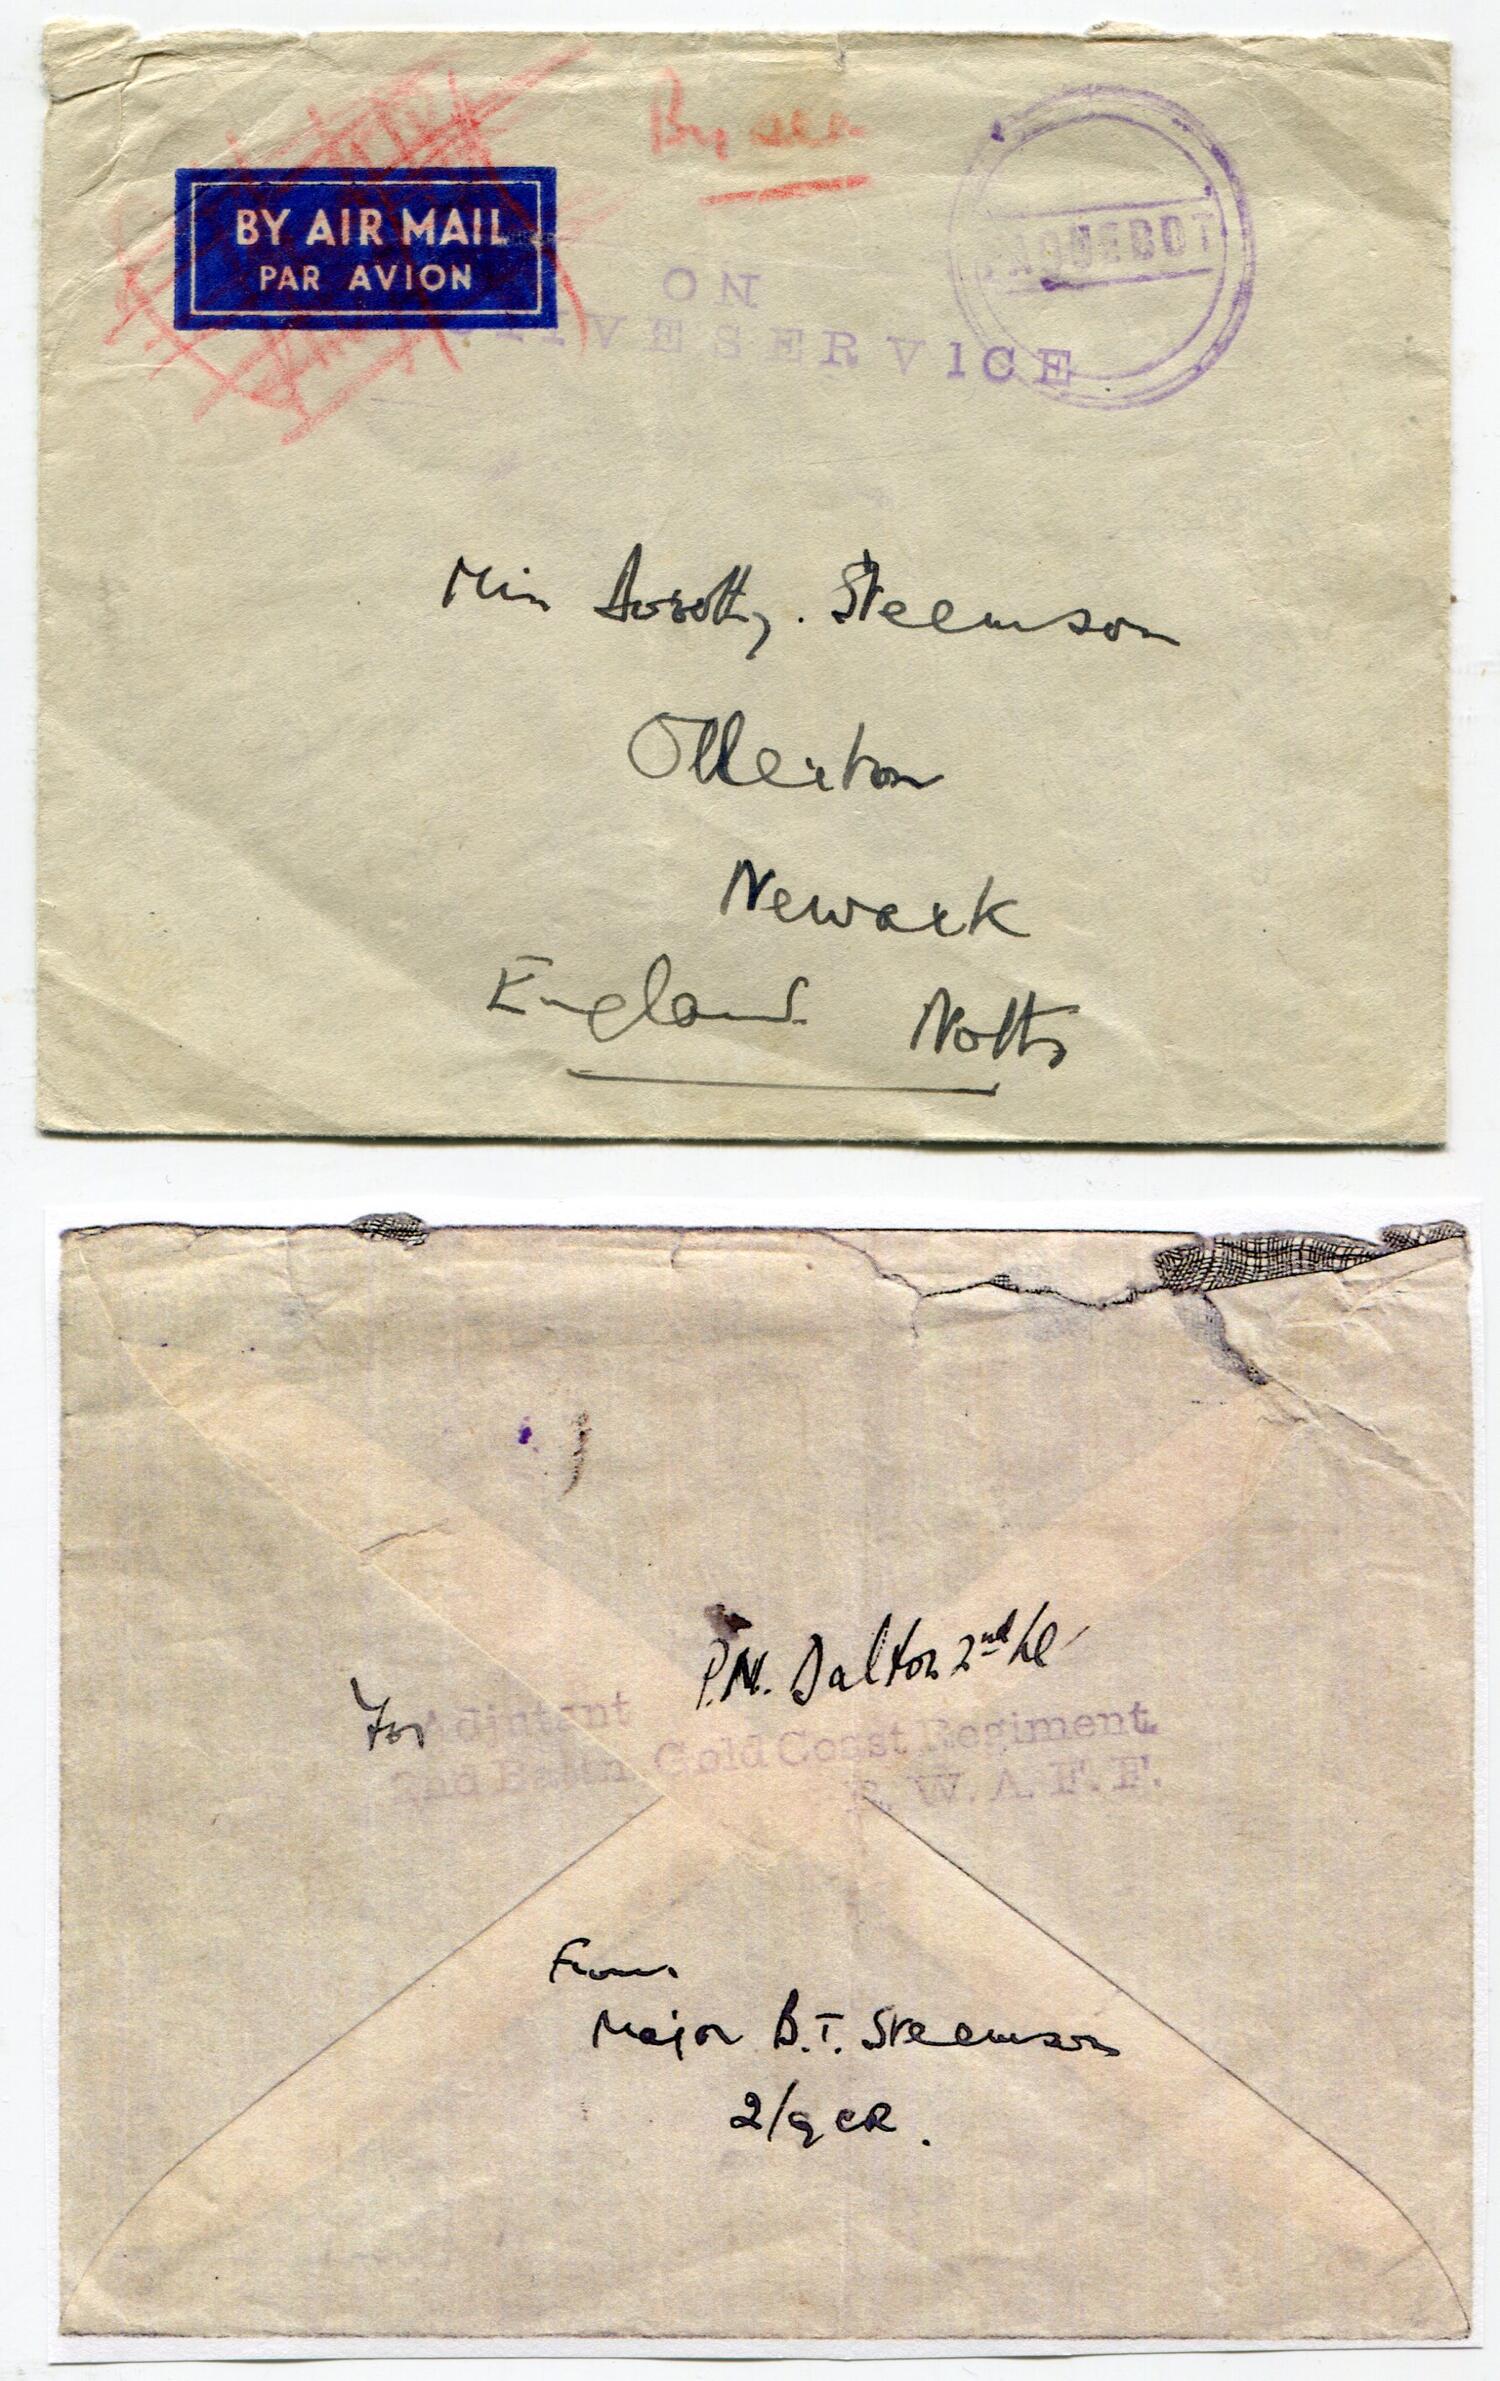 By sea
BY AIR MAIL
PAR AVION
PAQUEBOT
ON
ACTIVE SERVICE
Miss Dorothy. Steemson
Ollerton
Newark
England Notts
P.N. Dalton 2nd Lt
For Adjutant
2nd Battn Gold Coast Regiment.
R. W. A. F. F.
From
Major B.T. Steemson
2/GCR.